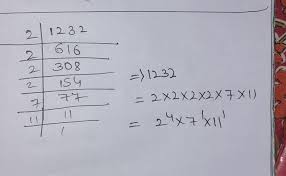 2 | 1232
2 | 616
2 | 308
2 | 154
7 | 77
11 | 11
1
=> 1232
= 2×2×2×2×7×11
= 2⁴×7¹×11¹